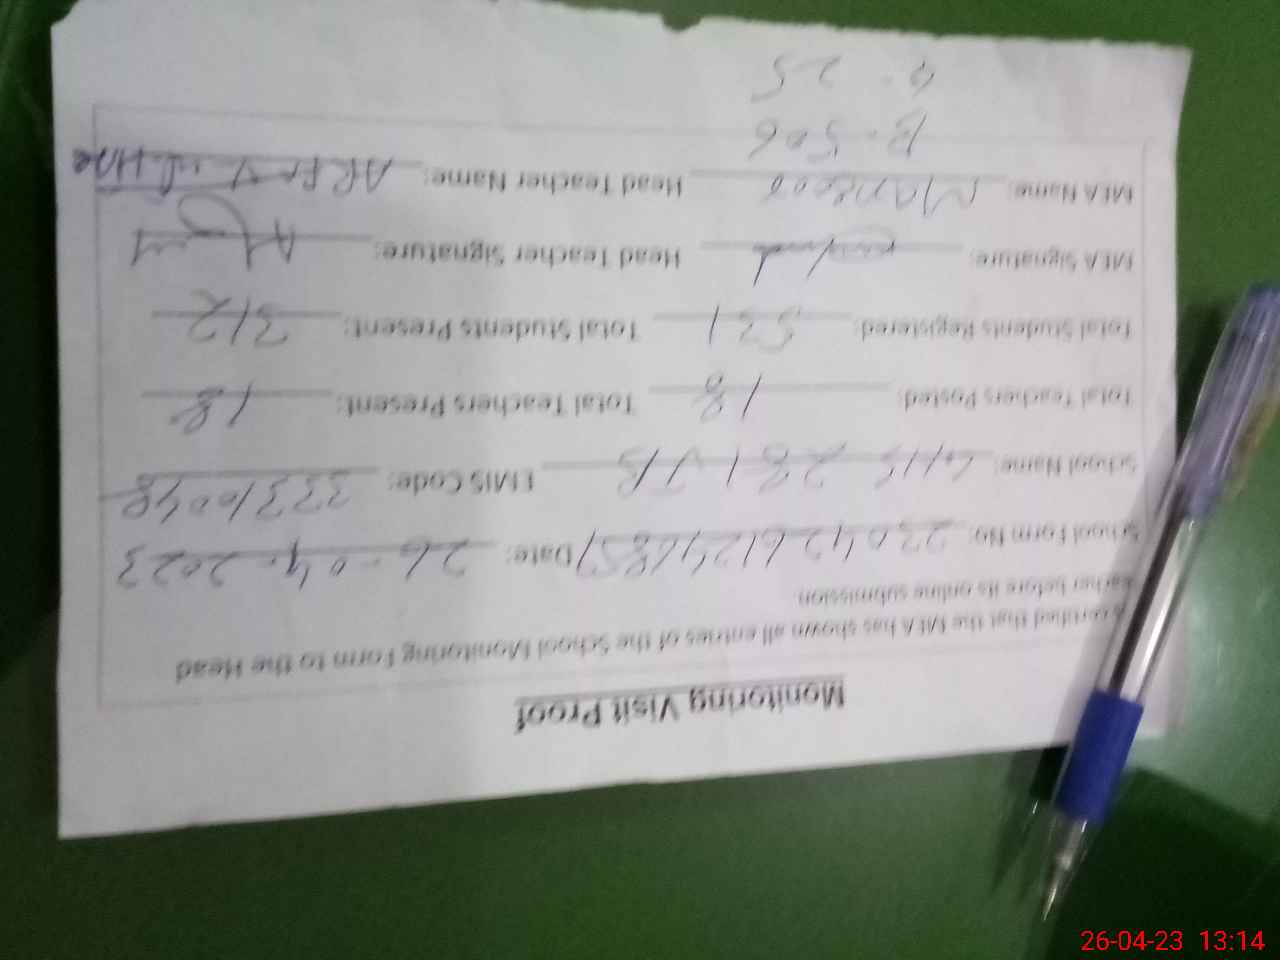 Monitoring Visit Proof
certified that the MEA has shown all entries of the School Monitoring Form to the Head
Teacher before its online submission.
School Form No: Date: 26-04-2023
School Name: GHS 281 JB EMIS Code: 33310048
Total Teachers Posted: 18 Total Teachers Present: 18
Total Students Registered: 531 Total Students Present: 312
MEA Signature: Head Teacher Signature:
MEA Name: Head Teacher Name:
B. 506
G. 25
26-04-23 13:14